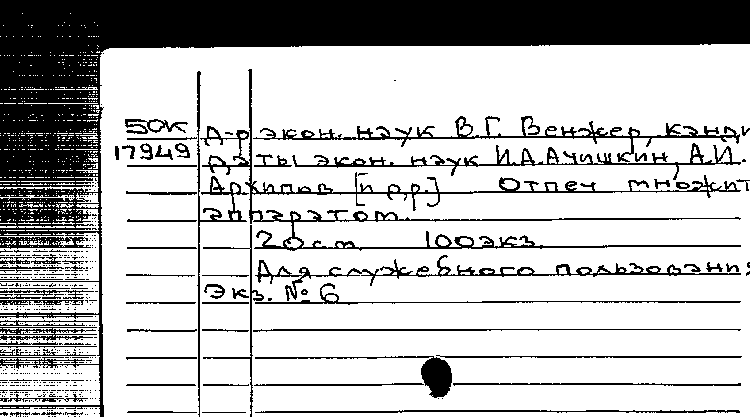 50К Д-р экон. наук В.Г. Венжер, канди
17949 даты экон. наук И.А.Ачишкин, А.И.
Архипов [и др.] Отпеч множит
аппаратом.
20 ст. 100экз.
Для служебного пользования
Экз. № 6